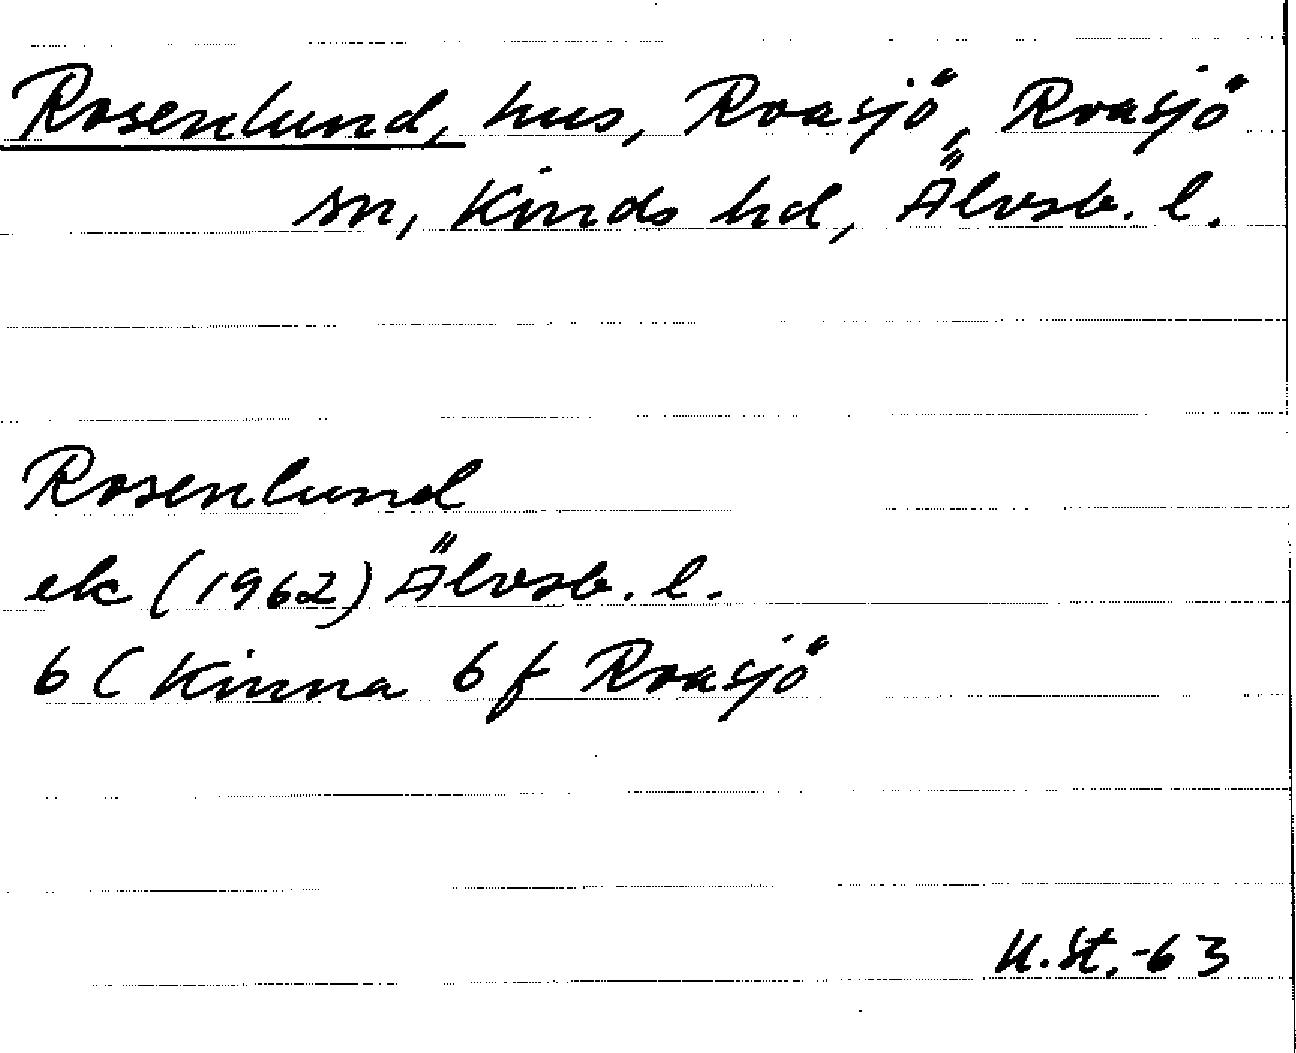 Rosenlund, hus, Roasjö, Roasjö
sn, Kinds hd, Älvsb. l.
Rosenlund
ek (1962) Älvsb. l.
6 C Kinna 6 f Roasjö
U. St. -63